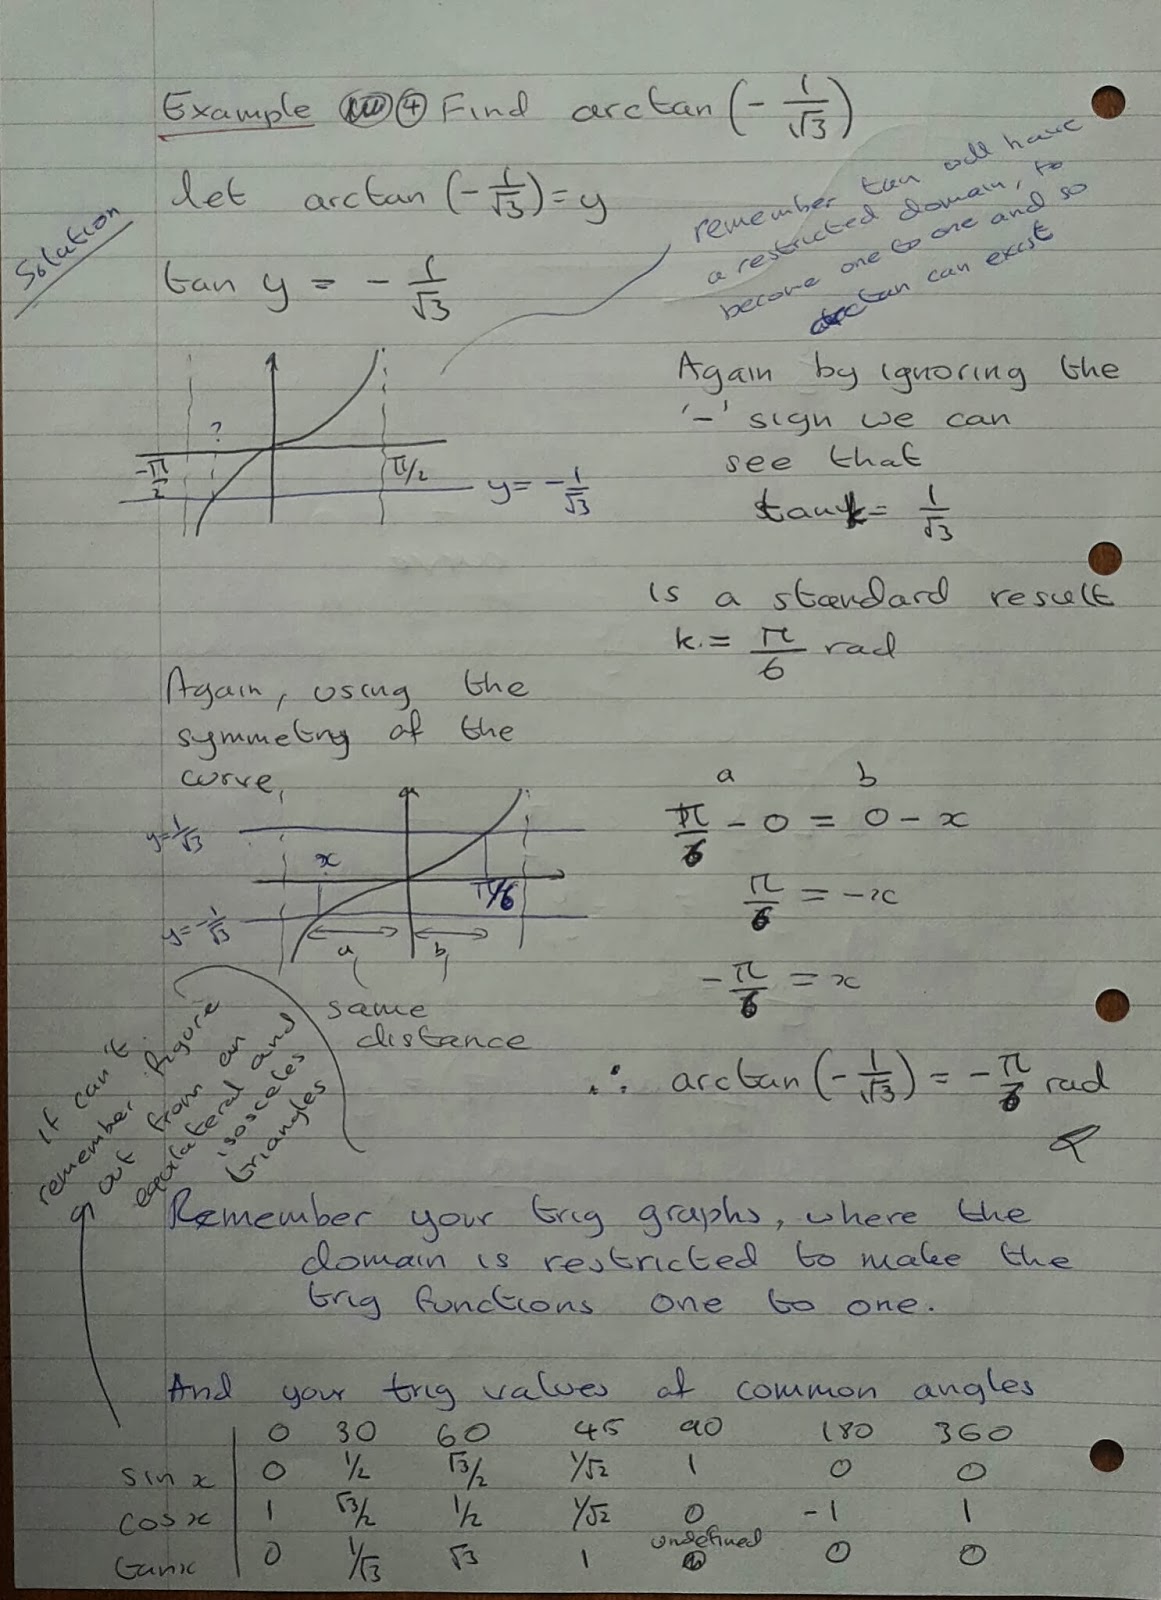 Example ④ Find arctan(-1/√3)
Solution
let arctan(-1/√3)=y
tan y = -1/√3
remember tan will have
a restricted domain, to
become one to one and so
arctan can exist
?
-π/2
π/2
y=-1/√3
Again by ignoring the
'-' sign we can
see that
tan k = 1/√3
is a standard result
k = π/6 rad
Again, using the
symmetry of the
curve,
y=1/√3
x
π/6
y=-1/√3
a b
same
distance
a b
π/6 - 0 = 0 - x
π/6 = -x
-π/6 = x
∴ arctan(-1/√3) = -π/6 rad
If can't
remember figure
out from an
equilateral and
isosceles
triangles
Remember your trig graphs, where the
domain is restricted to make the
trig functions one to one.
And your trig values of common angles
0 30 60 45 90 180 360
sin x 0 1/2 √3/2 1/√2 1 0 0
cos x 1 √3/2 1/2 1/√2 0 -1 1
tan x 0 1/√3 √3 1 undefined 0 0